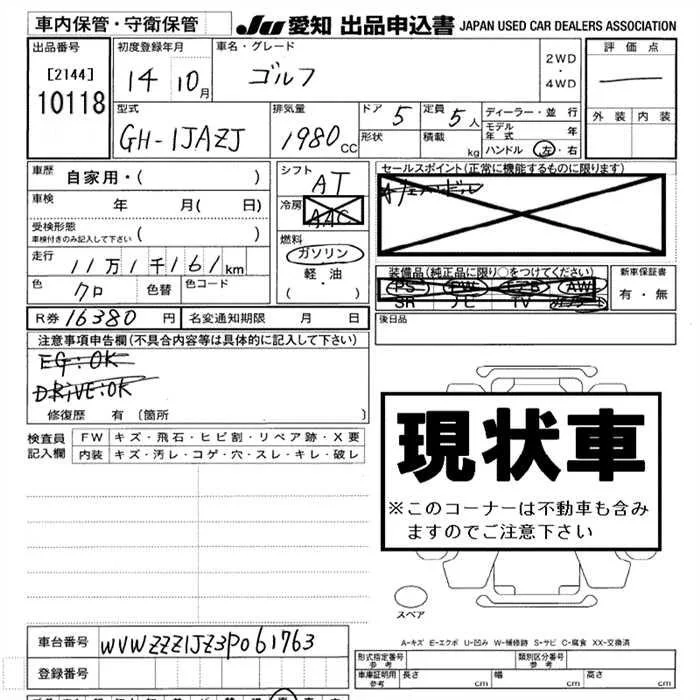 車内保管・守衛保管
JU 愛知 出品申込書 JAPAN USED CAR DEALERS ASSOCIATION
出品番号
[2144]
10118
初度登録年月
14 10月
車名・グレード
ゴルフ
2WD
・
4WD
評価点
外装 内装
型式
GH-1JAZJ
排気量
1980cc
ドア 5
定員 5人
形状
積載 kg
ディーラー・並行
モデル年式 年
ハンドル 左・右
車歴 自家用・( )
車検 年 月( 日)
受検形態
車検付きのみ記入して下さい ( )
走行 11万1千161km
色 クロ 色替 色コード
シフト
AT
冷房
AAC
燃料
ガソリン
軽・油
( ・ )
セールスポイント(正常に機能するものに限ります)
装備品(純正品に限り○をつけてください)
PS PW エアB AW
SR ナビ TV
新車保証書
有・無
R券 16380円 名変通知期限 月 日
後日品
注意事項申告欄(不具合内容等は具体的に記入して下さい)
EG:OK
DRIVE:OK
修復歴 有 〔箇所 〕
検査員 FW キズ・飛石・ヒビ割・リペア跡・X要
記入欄 内装 キズ・汚レ・コゲ・穴・スレ・キレ・破レ
現状車
※このコーナーは不動車も含み
ますのでご注意下さい
スペア
A-キズ E-エクボ U-凹み W-補修跡 S-サビ C-腐食 XX-交換済
車台番号 WVWZZZ1JZ3P061763
登録番号
形式指定番号 参考 類別区分番号 参考
車庫証明用 参考 長さ cm 幅 cm 高さ cm